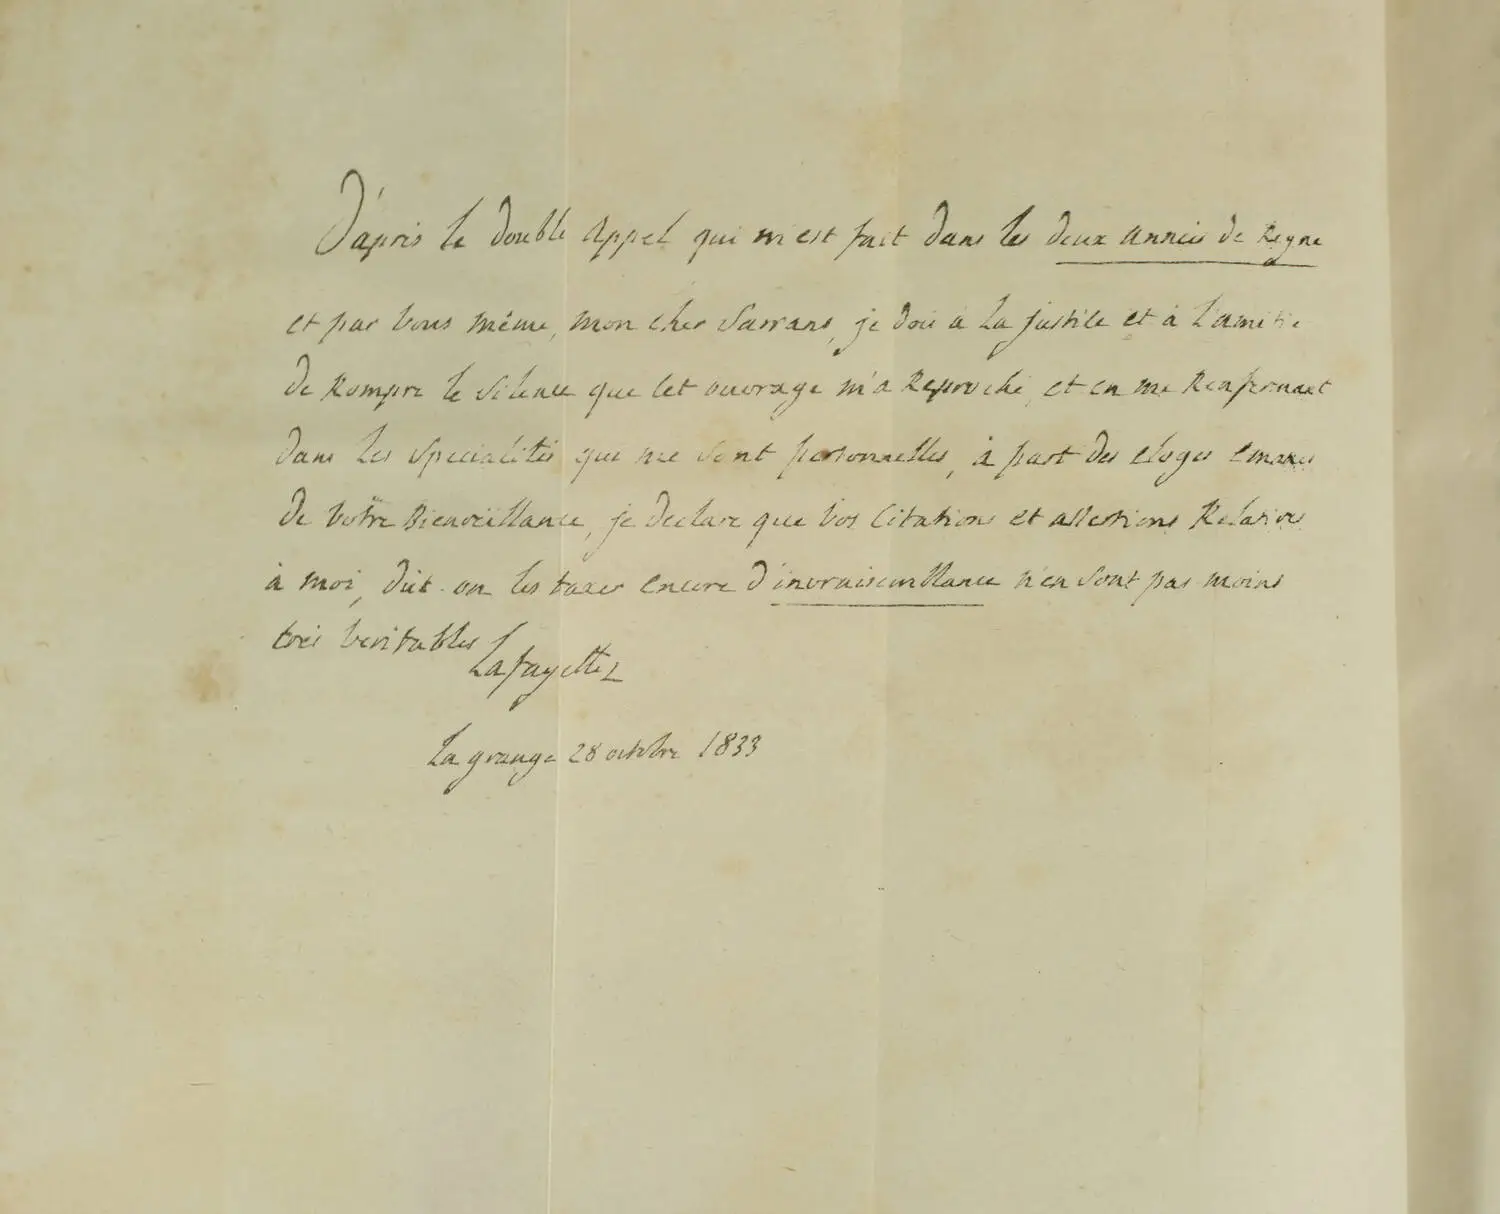 D'après le double appel qui m'est fait dans les deux années de Regne
et par vous même, mon cher Sarrans, je dois à la justice et à l'amitié
de Rompre le silence que cet ouvrage m'a Reproché, et en me Renfermant
dans les specialités qui me sont personnelles, à part des eloges emanés
de votre Bienveillance, je declare que vos citations et assertions Relatives
à moi, dut-on les taxer encore d'invraisemblance n'en sont pas moins
très veritables
Lafayette
La grange 28 octobre 1833